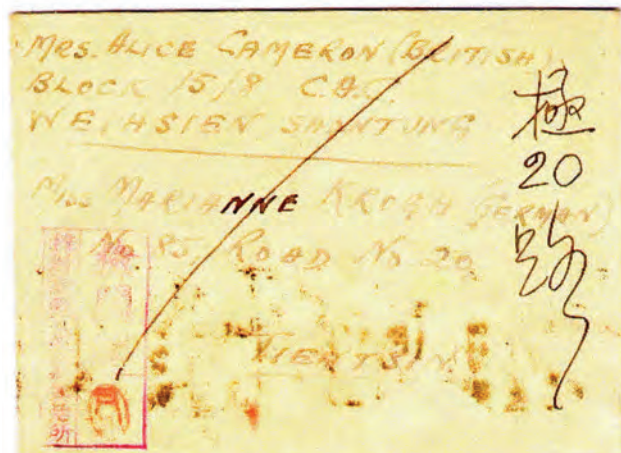 MRS. ALICE CAMERON (BRITISH)
BLOCK 15/8 C.A.C.
WEIHSIEN SHANTUNG
MISS MARIANNE KROGH (GERMAN)
No 85, ROAD No 20
TIENTSIN
極
20
路